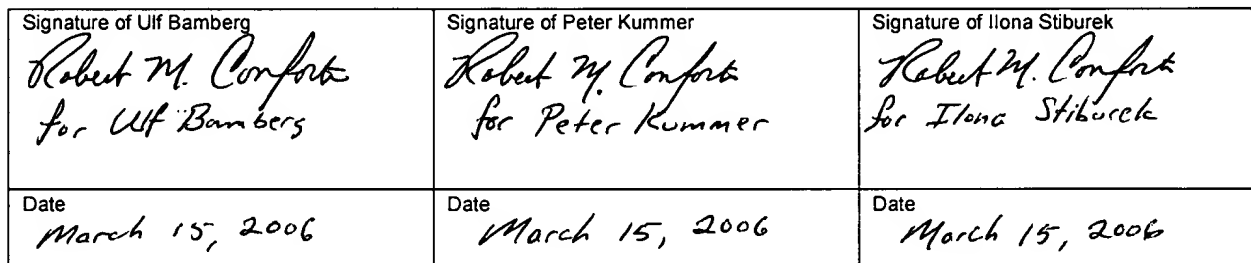 Signature of Ulf Bamberg
Robert M. Conforti
for Ulf Bamberg
Signature of Peter Kummer
Robert M. Conforti
for Peter Kummer
Signature of Ilona Stiburek
Robert M. Conforti
for Ilona Stiburek
Date
March 15, 2006
Date
March 15, 2006
Date
March 15, 2006